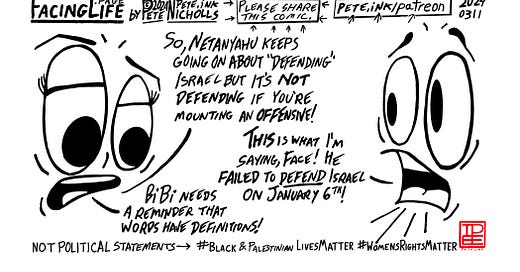 FACINGLIFE
BY ©2024 PETE.INK
PETE NICHOLLS
PLEASE SHARE
THIS COMIC.
PETE.INK/patreon
2024
0311
SO, NETANYAHU KEEPS
GOING ON ABOUT "DEFENDING"
ISRAEL BUT IT'S NOT
DEFENDING IF YOU'RE
MOUNTING AN OFFENSIVE!
THIS IS WHAT I'M
SAYING, FACE! HE
FAILED TO DEFEND ISRAEL
ON JANUARY 6TH!
BIBI NEEDS
A REMINDER THAT
WORDS HAVE DEFINITIONS!
NOT POLITICAL STATEMENTS→ #BLACK & PALESTINIAN LIVESMATTER #WOMENSRIGHTSMATTER